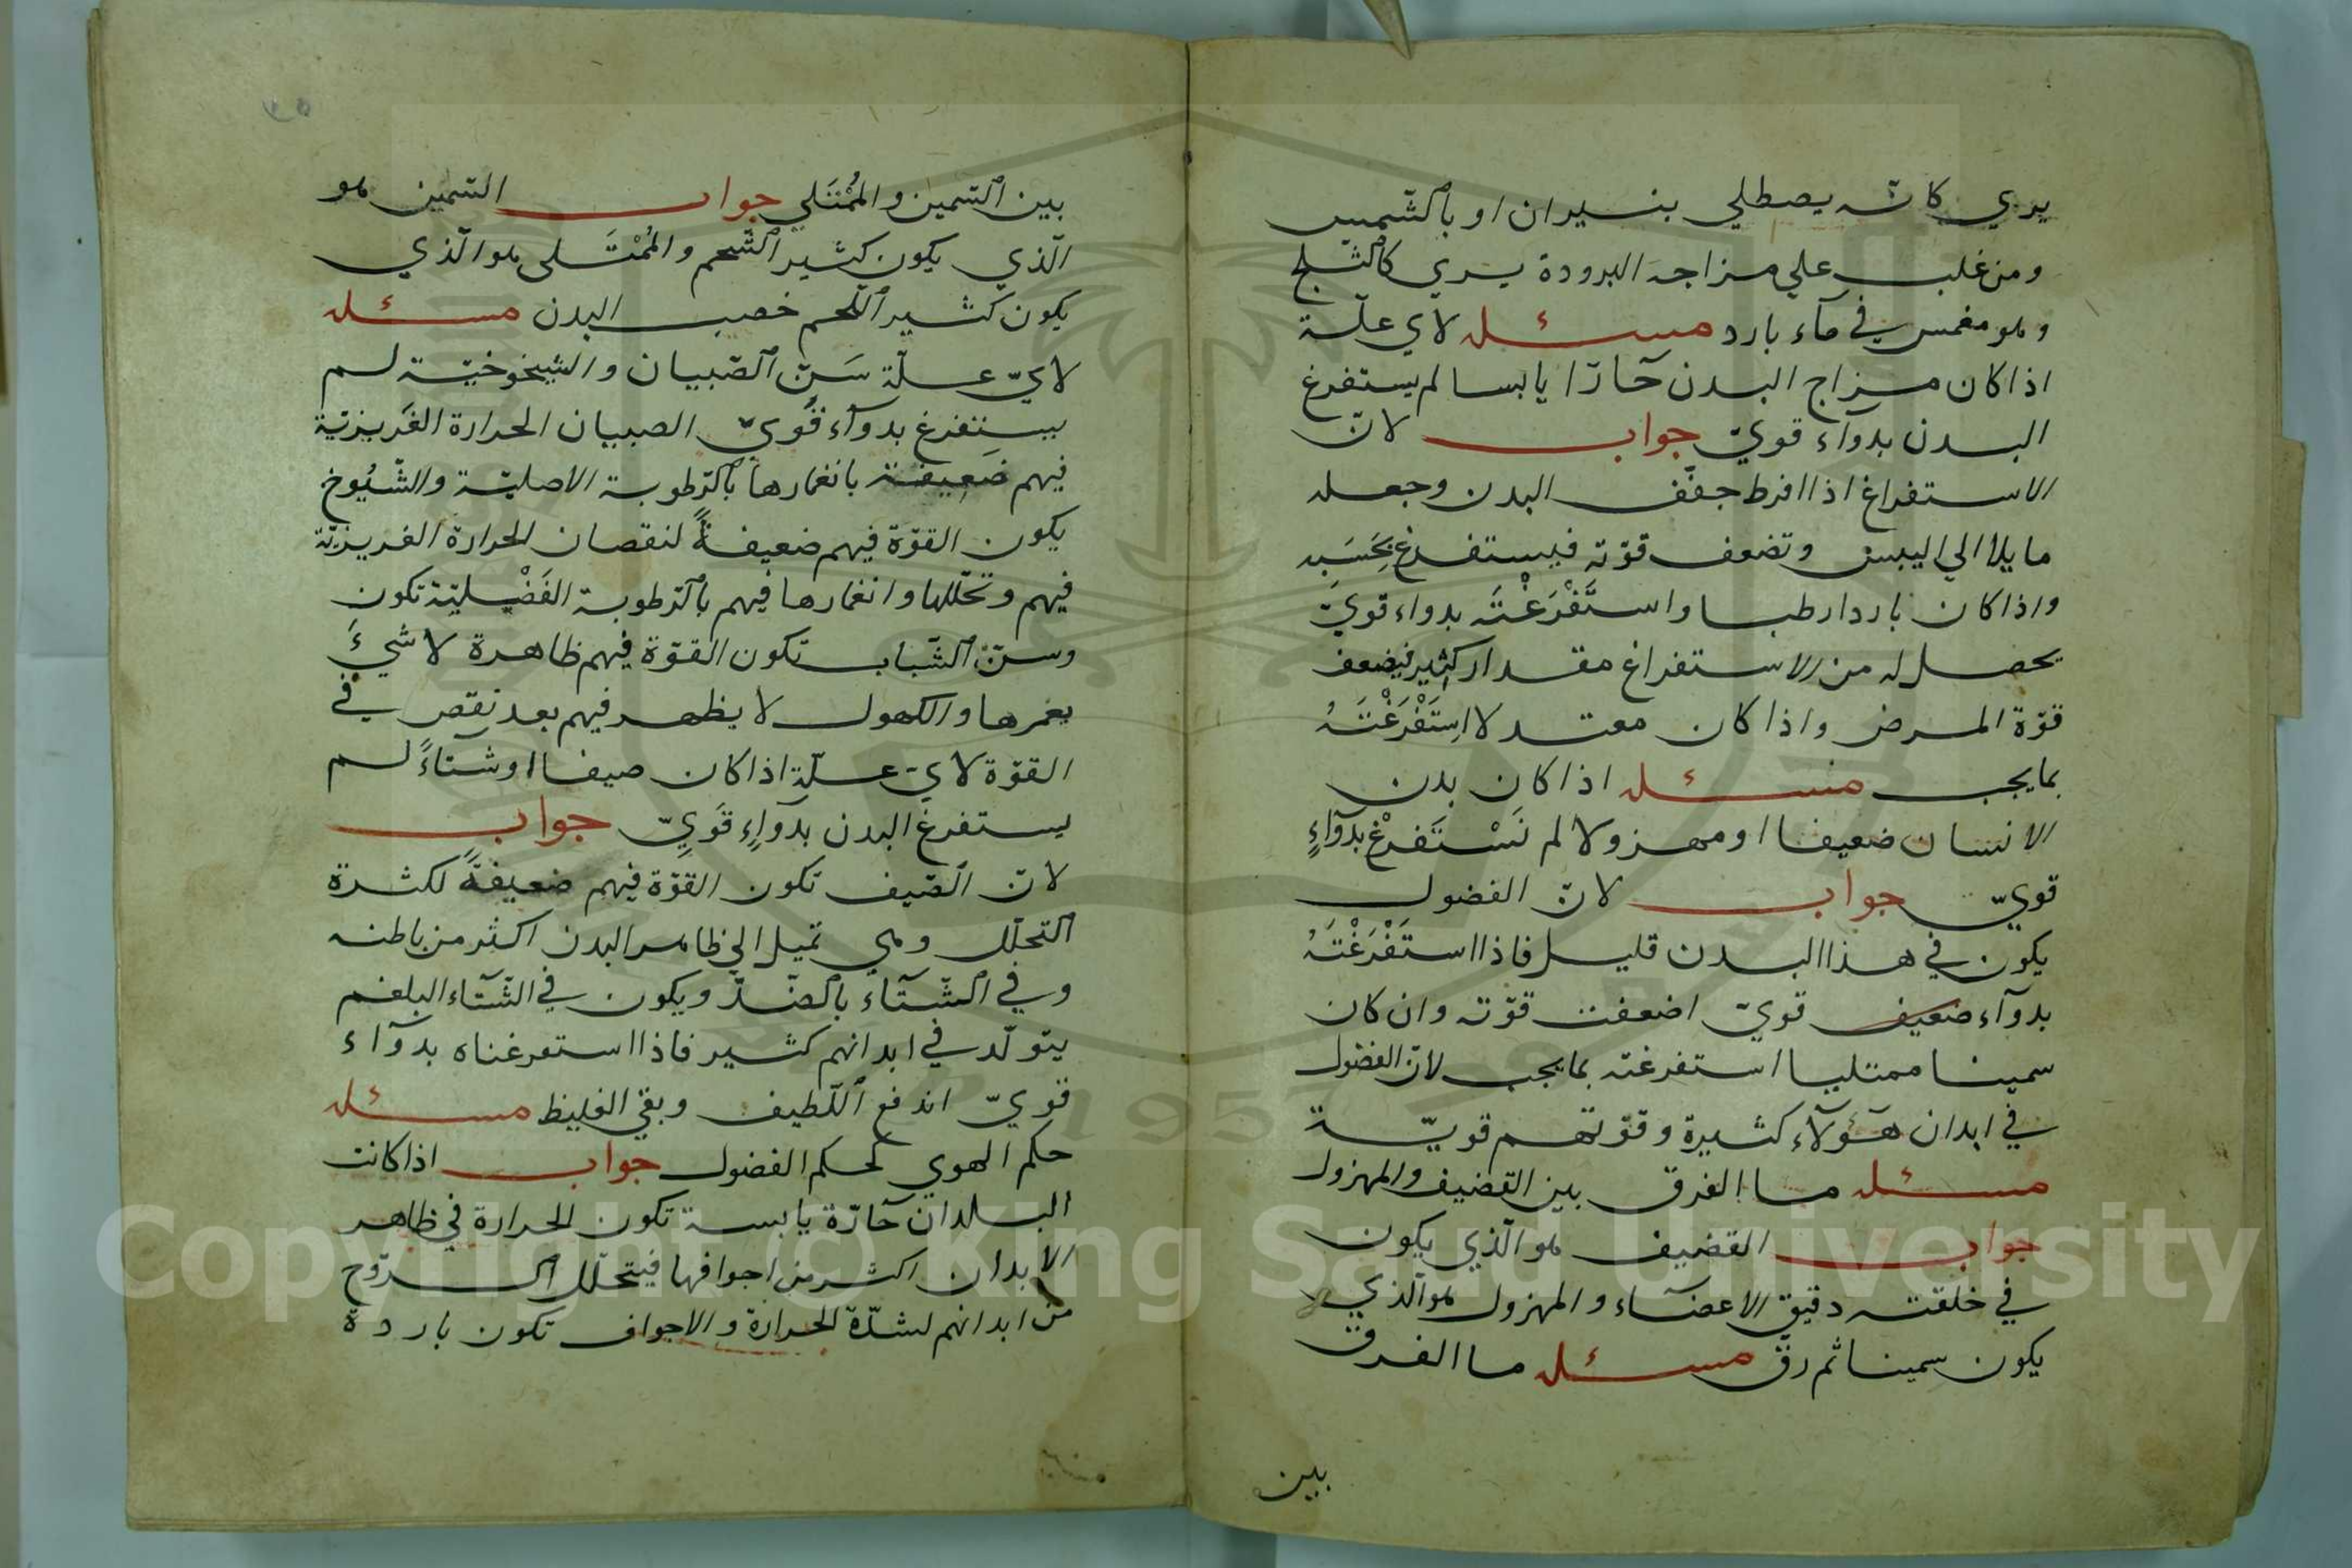 يري كانّه يصطلي بنيران او بالشّمس
ومن غلب علي مزاجه البرودة يري كالثلج
وهو مغمس في مآء بارد مسئله لاي علّة
اذا كان مزاج البدن حَآرّا يابسا لم يستفرغ
البدن بدوآء قويّ جواب لانّ
الاستفراغ اذا افرط جفّف البدن وجعله
مايلا الي اليبس وتضعف قوّته فيستفرغ بحَسَبِه
واذا كان باردا رطبا واستَفْرَغْتَه بدواء قويّ
يحصل له من الاستفراغ مقدار كثير فيضعف
قوّة المرض واذا كان معتدلا استَفْرَغْتَهُ
بما يجب مسئله اذا كان بدن
الانسان ضعيفا او مهزولا لم نَسْتَفرغْ بدَوآءٍ
قويّ جواب لانّ الفضول
يكون في هذا البدن قليل فاذا استَفْرَغْتَهُ
بدوآء ضعيف قويّ اضعفت قوّته وان كان
سمينا ممتليا استفرغته بما يجب لانّ الفضول
في ابدان هَؤلآء كثيرة وقوّتهم قويّة
مسئله ما الفرق بين القضيف والمهزول
جواب القضيف هو الّذي يكون
في خلقته دقيق الاعضآء والمهزول هو الّذي
يكون سمينا ثم رقّ مسئله ما الفرق
بين
بين السّمين والمُمْتَلي جواب السّمين هو
الّذي يكون كثير الشّحم والمُمْتَلى هو الّذي
يكون كثير اللّحم خصب البدن مسئله
لايّ علّة سَنّ الصّبيان والشيخوخيّة لم
يستفرغ بدوآء قَويّ الصبيان الحرارة الغَريزيّة
فيهم ضَعِيفة بانغمارها بالرّطوبة الاصليّة والشّيُوخ
يكون القوّة فيهم ضعيفةً لنقصان الحرارة الغريزيّة
فيهم وتحلّلها وانغمارها فيهم بالرّطوبة الفَضْيليّة تكون
وسنّ الشّباب تكون القوّة فيهم ظاهرة لا شيءَ
يغمرها والكهول لا يظهر فيهم بعد نقص في
القوّة لايّ علّة اذا كان صيفا او شتآءً لم
يستفرغ البدن بدَوآءٍ قَوِيّ جواب
لانّ الصّيف تكون القوّة فيهم ضعيفةً لكثرة
التحلّل وهي تميل الي ظاهر البدن اكثر من باطنه
وفي الشّتآء بالضّدّ ويكون في الشّتآء البلغم
يتولّد في ابدانهم كثير فاذا استفرغناه بدوآء
قويّ اندفع اللّطيف وبقي الغليظ مسئله
حكم الهوي كحكم الفضول جواب اذا كانت
البلدان حَارّة يابسة تكون الحرارة في ظاهر
الابدان اكثر من اجوافها فيتحلّل الرّوح
من ابدانهم لشدّة الحرارة والاجواف تكون باردة
Copyright © King Saud University
1957